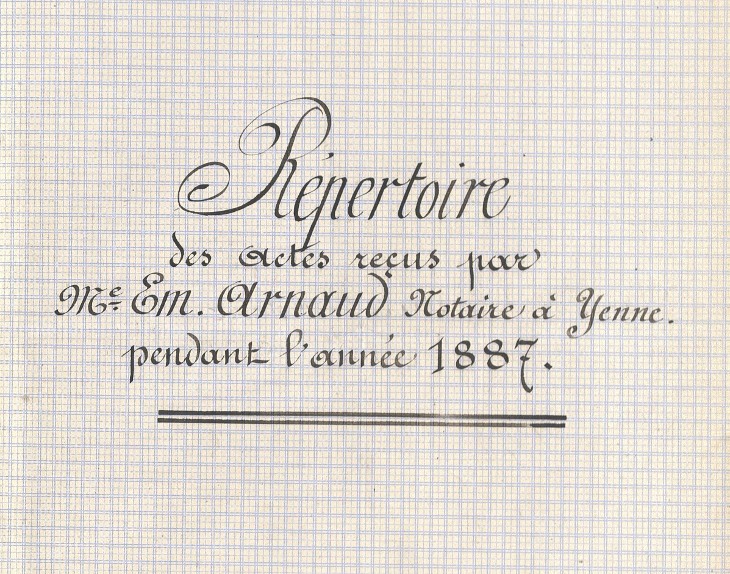 Répertoire
des actes reçus par
Me Em. Arnaud Notaire à Yenne.
pendant l'année 1887.